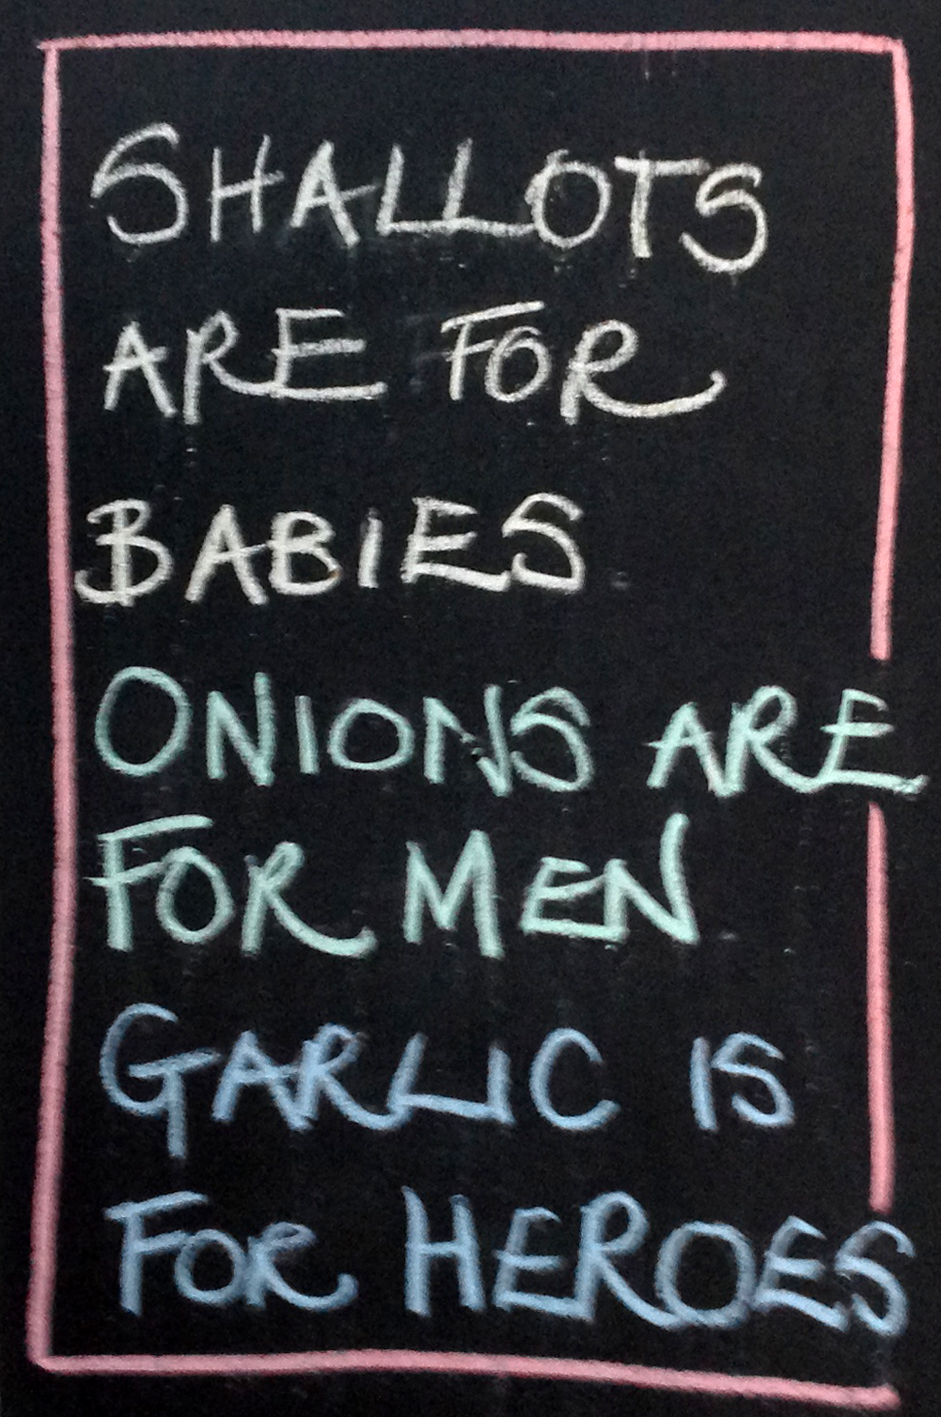 SHALLOTS
ARE FOR
BABIES
ONIONS ARE
FOR MEN
GARLIC IS
FOR HEROES